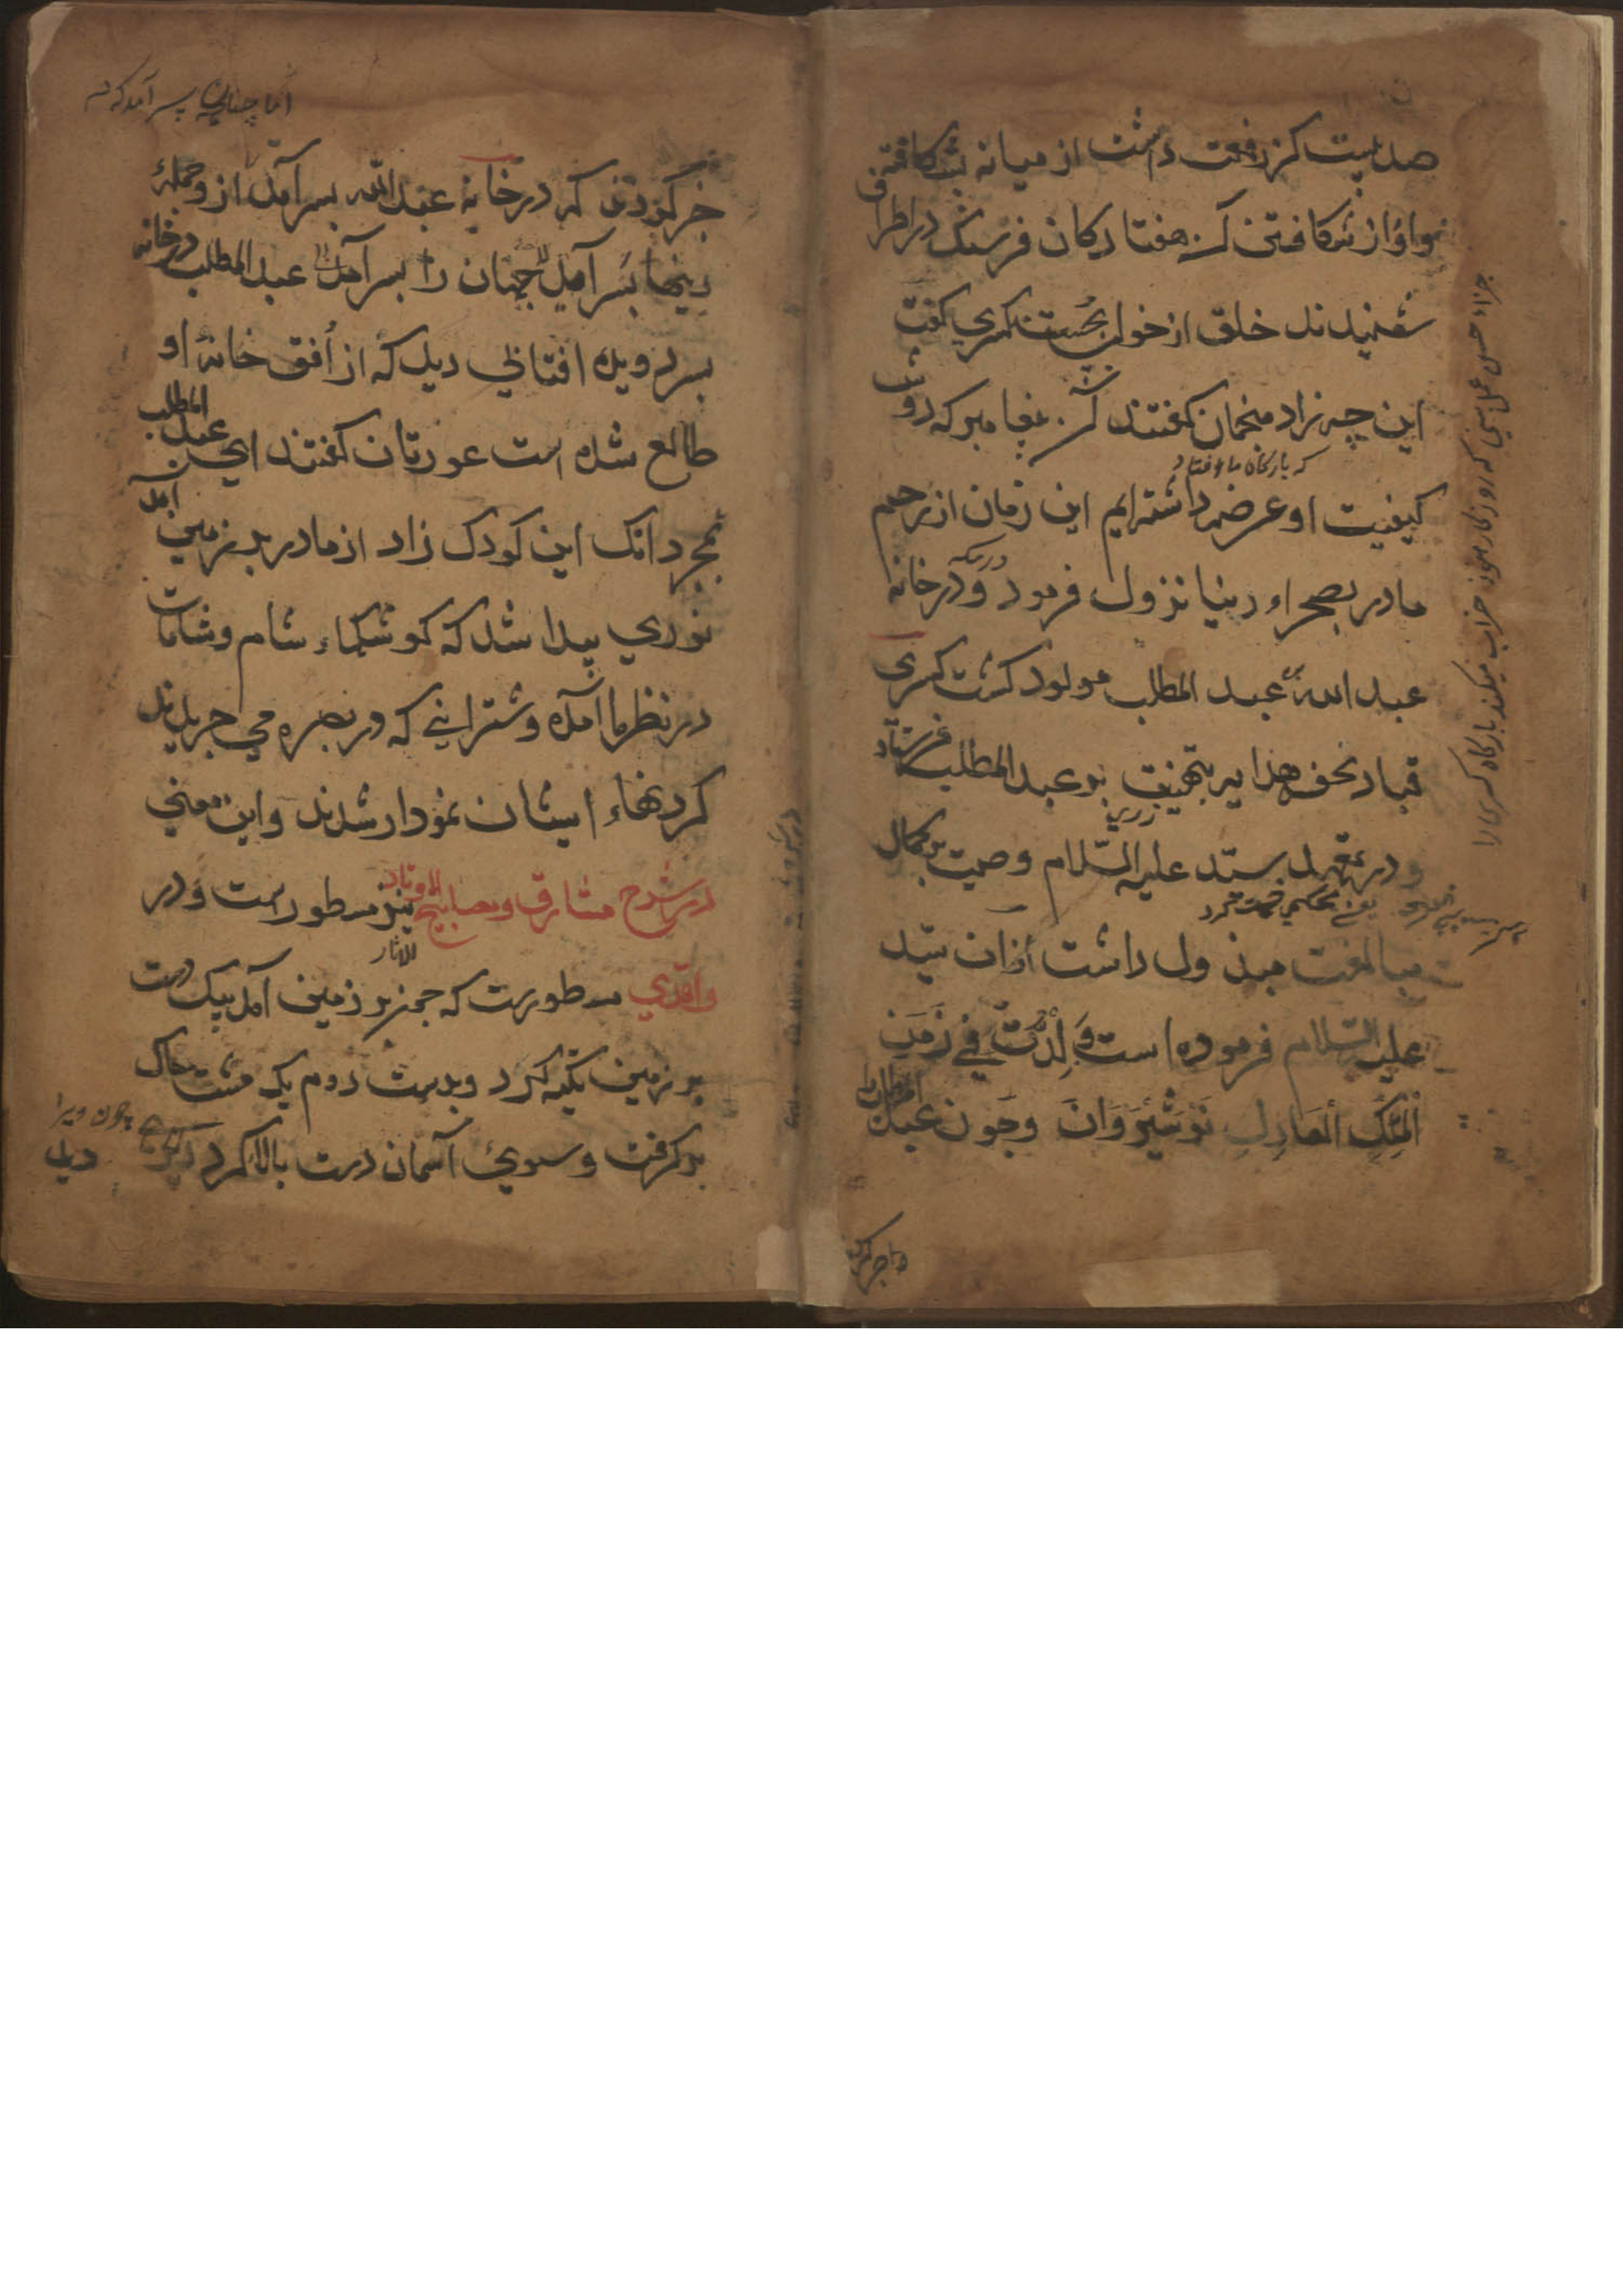 صد بیست کز رفعت داشت از میانه بشکافته
واواز شکافتن آن هفتاد کان فرسنک در اطراف
شنیدند خلق از خواب بجستند کسری کفت
این چه زاد منجمان کفتند آن پیغامبر که دوش
که بارکاه ما افتاد
کیفیت او عرضه داشته ایم این زمان از رحم
مادر بصحراء دنیا نزول فرمود و در خانه
در مکه
عبد الله عبد المطلب مولود کشت کسری
قباد تحف هدایا بتهنیت بر عبد المطلب فرستاد
و در تعهد سید علیه السلام وصیت بر کمال
مبالغت مبذول داشت ازان سید
علیه السلام فرموده است وُلِدْتُ فِي زَمَنِ
الْمَلِكِ الْعَادِلِ نَوْشِيْرَوَانَ وچون عبد المطلب را
جزاء حسن عمل بین که روزکار هنوز خراب میکند بارکاه کسری را
اما چنان پسر آمد که
خبر کردند که در خانه عبد الله پسر آمد از جمله
پسر آمد جهان را پسر آمد عبد المطلب در خانه
پسر دوید افتابی دید که از أفق خانهٔ او
طالع شده است عورتان کفتند ای عبد المطلب
بمجرد انک این کودک زاد از مادر بر زمین آمد
نوری پیدا شد که کوشکهاء شام و شامات
در نظر ما آمده و شترانی که در بصره می چریدند
کردنهاء ایشان نمودار شدند واین معنی
در شرح مشارق و مصابیح نیز مسطور است و در
الآثار
واقدي مسطورست که چون بر زمین آمد بیک دست
بر زمین تکیه کرد و بدست دوم یک مشت خاک
بر کرفت و سوی آسمان دست بالا کرد
چون ویرا
دید